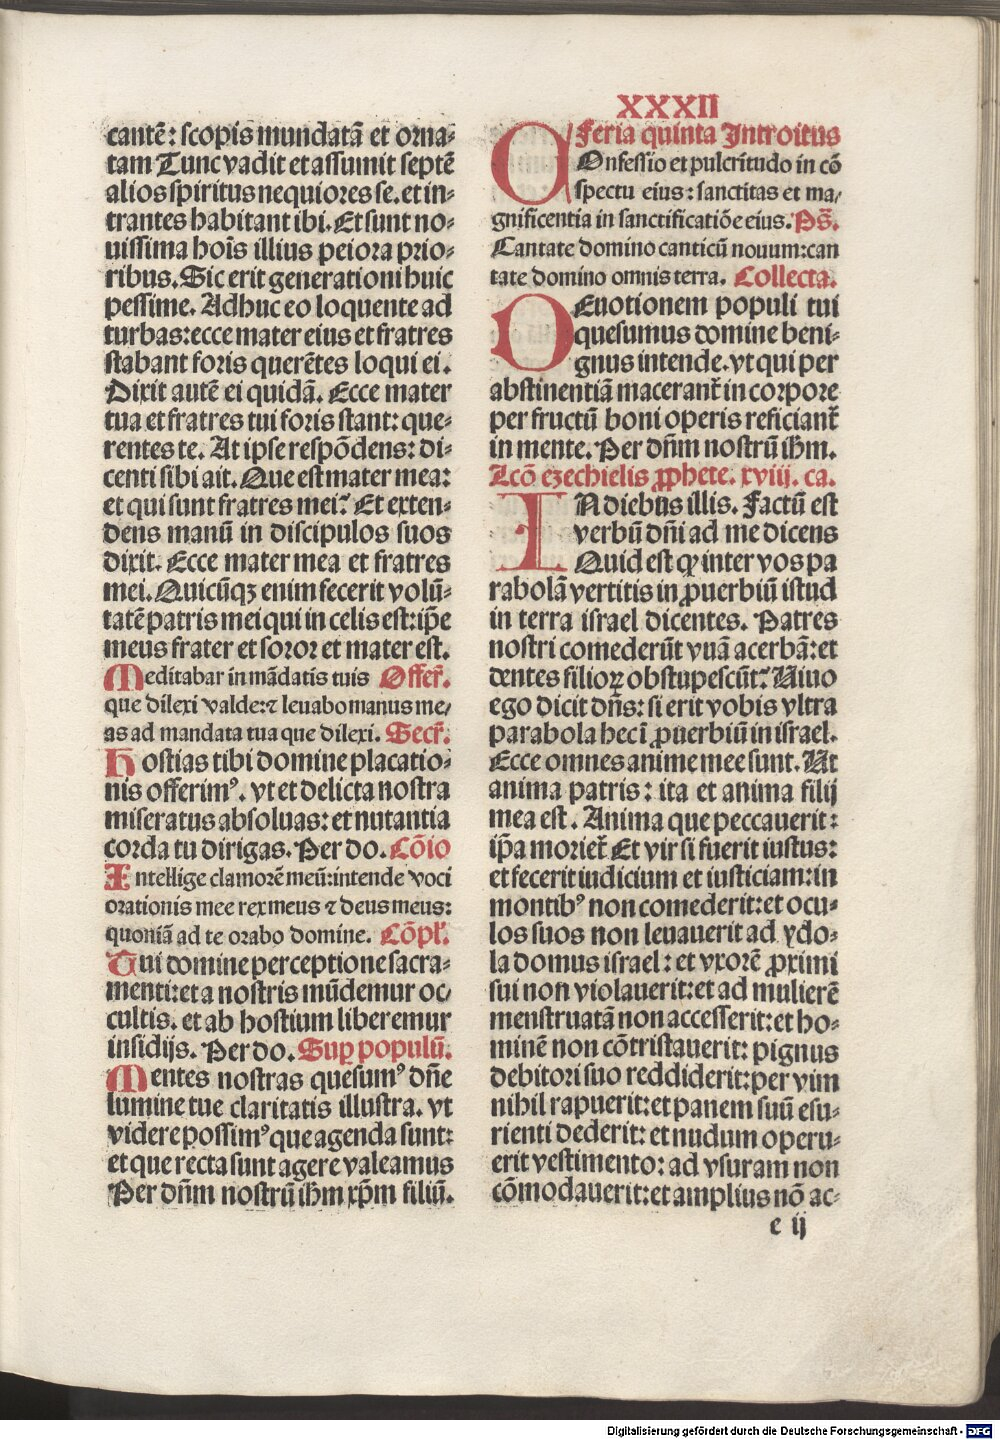 XXXII
cantē: scopis mundatā et orna-
tam Tunc vadit et assumit septē
alios spiritus nequiores se. et in-
trantes habitant ibi. Et sunt no-
uissima hoīs illius peiora prio-
ribus. Sic erit generationi huic
pessime. Adhuc eo loquente ad
turbas: ecce mater eius et fratres
stabant foris querētes loqui ei.
Dixit autē ei quidā. Ecce mater
tua et fratres tui foris stant: que-
rentes te. At ipse respōdens: di-
centi sibi ait. Que est mater mea:
et qui sunt fratres mei? Et exten-
dens manū in discipulos suos
dixit. Ecce mater mea et fratres
mei. Quicūqꝫ enim fecerit volū-
tatē patris mei qui in celis est: ip̄e
meus frater et soror et mater est.
Meditabar in mādatis tuis Offer̄.
que dilexi valde: ⁊ leuabo manus me/
as ad mandata tua que dilexi. Secr̄.
Hostias tibi domine placatio-
nis offerimꝰ. vt et delicta nostra
miseratus absoluas: et nutantia
corda tu dirigas. Per do. Cōio
Intellige clamorē meū: intende voci
orationis mee rex meus ⁊ deus meus:
quoniā ad te orabo domine. Cōpl̄.
Tui domine perceptione sacra-
menti: et a nostris mūdemur oc/
cultis. et ab hostium liberemur
insidijs. Per do. Suꝑ populū.
Mentes nostras quesumꝰ dn̄e
lumine tue claritatis illustra. vt
videre possimꝰ que agenda sunt:
et que recta sunt agere valeamus
Per dn̄m nostrū ihm̄ xp̄m filiū.
Feria quinta Introitus
COnfessio et pulcritudo in cō
spectu eius: sanctitas et ma/
gnificentia in sanctificatiōe eius. Ps̄.
Cantate domino canticū nouum: can
tate domino omnis terra. Collecta.
DEuotionem populi tui
quesumus domine beni-
gnus intende. vt qui per
abstinentiā macerant̄ in corpore
per fructū boni operis reficiant̄
in mente. Per dn̄m nostrū ihm̄.
Lcō ezechielis ꝓphete. xviij. ca.
IN diebus illis. Factū est
verbū dn̄i ad me dicens
Quid est ꝙ inter vos pa
rabolā vertitis in ꝓuerbiū istud
in terra israel dicentes. Patres
nostri comederūt vuā acerbā: et
dentes filioꝝ obstupescūt? Viuo
ego dicit dn̄s: si erit vobis vltra
parabola hec ī ꝓuerbiū in israel.
Ecce omnes anime mee sunt. Vt
anima patris: ita et anima filij
mea est. Anima que peccauerit:
ip̄a moriet̄ Et vir si fuerit iustus:
et fecerit iudicium et iusticiam: in
montibꝰ non comederit: et ocu-
los suos non leuauerit ad ydo-
la domus israel: et vxorē ꝓximi
sui non violauerit: et ad mulierē
menstruatā non accesserit: et ho-
minē non cōtristauerit: pignus
debitori suo reddiderit: per vim
nihil rapuerit: et panem suū esu-
rienti dederit: et nudum operu-
erit vestimento: ad vsuram non
cōmodauerit: et amplius nō ac-
e ij
Digitalisierung gefördert durch die Deutsche Forschungsgemeinschaft - DFG